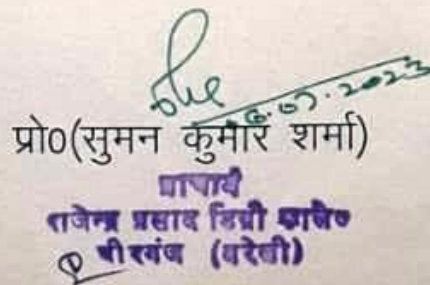 .07.2023
प्रो0(सुमन कुमार शर्मा)
प्राचार्य
राजेन्द्र प्रसाद डिग्री कालेज
मीरगंज (बरेली)